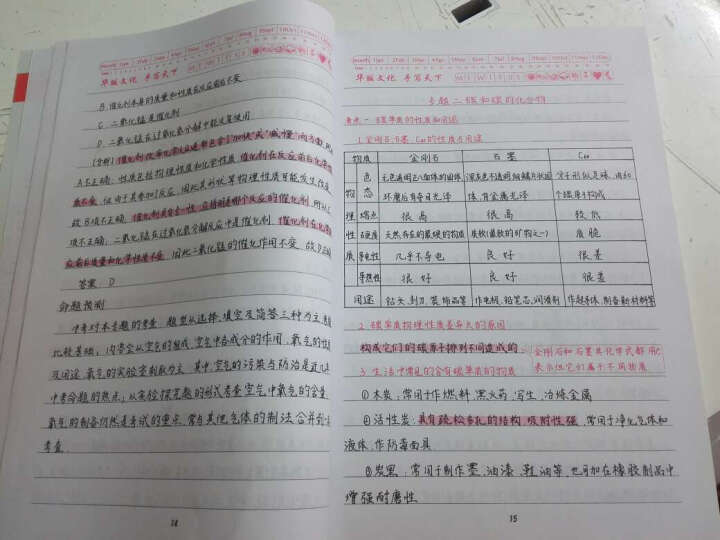 华版文化 手写天下
B. 催化剂本身的质量和性质在反应前后不变
C. 二氧化锰是催化剂
D. 二氧化锰在过氧化氢分解中能反复使用
[分析] 催化剂
A不正确, 性质包括物理性质和化学性质, 催化剂在反应前后化学性
质不变, 但由于其参加了反应, 因此其形状等物理性质可能发生改变
故B项不正确,
项不正确, 二氧化锰在过氧化氢分解反应中是催化剂, 催化剂在化学反
应前后质量和化学性质不变, 因此二氧化锰的催化作用不变, 故D正确
答案: D
命题预测
中考对本专题的考查, 题型以选择、填空及简答三种为主, 难度
比较基础, 内容会以空气的组成, 空气中各成分的作用, 氧气的性质
及用途, 氧气的实验室制取为主, 其中, 空气的污染与防治是近几年
中考命题的热点, 以实验探究题的形式考查空气中氧气的含量,
氧气的制备仍然是考试的重点, 常与其他气体的制法合并到一起
考查.
14
华版文化 手写天下
专题二 碳和碳的化合物
考点一 碳单质的性质和用途
1. 金刚石、石墨、C60的性质与用途
物质 金刚石 石墨 C60
物理性质
色态 无色透明正八面体的固体, 琢磨后有夺目光泽 深灰色不透明细鳞片状固体, 有金属光泽 分子形似足球, 由60个碳原子构成
熔点 很高 很高 较低
硬度 天然存在的最硬的物质 质软(最软的矿物之一) 质脆
导电性 几乎不导电 良好 很差
导热性 很好 良好 很差
用途 钻头、刻刀、装饰品等 作电极、铅笔芯、润滑剂 作超导体、制备新材料等
2. 碳单质物理性质差异大的原因
构成它们的碳原子排列不同造成的.
金刚石和石墨其化学式都用C
表示但它们属于不同物质
3. 生活中常见的含有碳单质的物质
① 木炭: 常用于作燃料、黑火药、写生、冶炼金属
② 活性炭: 具有疏松多孔的结构, 吸附性强, 常用于净化气体和
液体, 作防毒面具
③ 炭黑: 常用于制作墨、油漆、鞋油等, 也可加在橡胶制品中
增强耐磨性
15